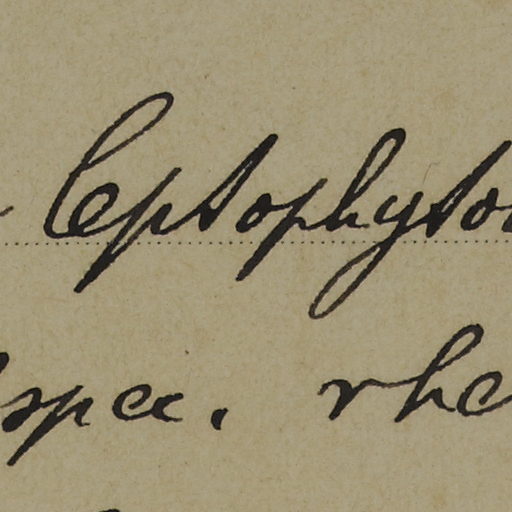 leptophyto
spec. rhe